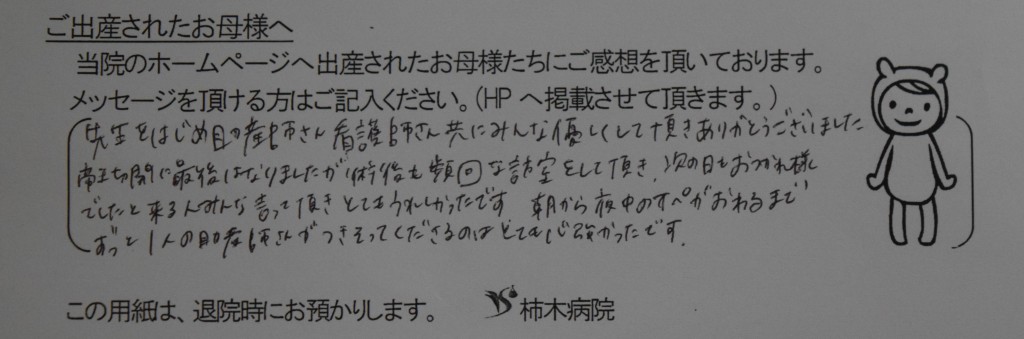 ご出産されたお母様へ
当院のホームページへ出産されたお母様たちにご感想を頂いております。
メッセージを頂ける方はご記入ください。(HPへ掲載させて頂きます。)
先生をはじめ助産師さん看護師さん共にみんな優しくして頂きありがとうございました
帝王切開に最後はなりましたが術後も頻回な訪室をして頂き、次の日もおつかれ様
でしたと来る人みんな言って頂きとてもうれしかったです 朝から夜中のオペがおわるまで
ずっと1人の助産師さんがつきそってくださるのはとても心強かったです.
この用紙は、退院時にお預かりします。
柿木病院